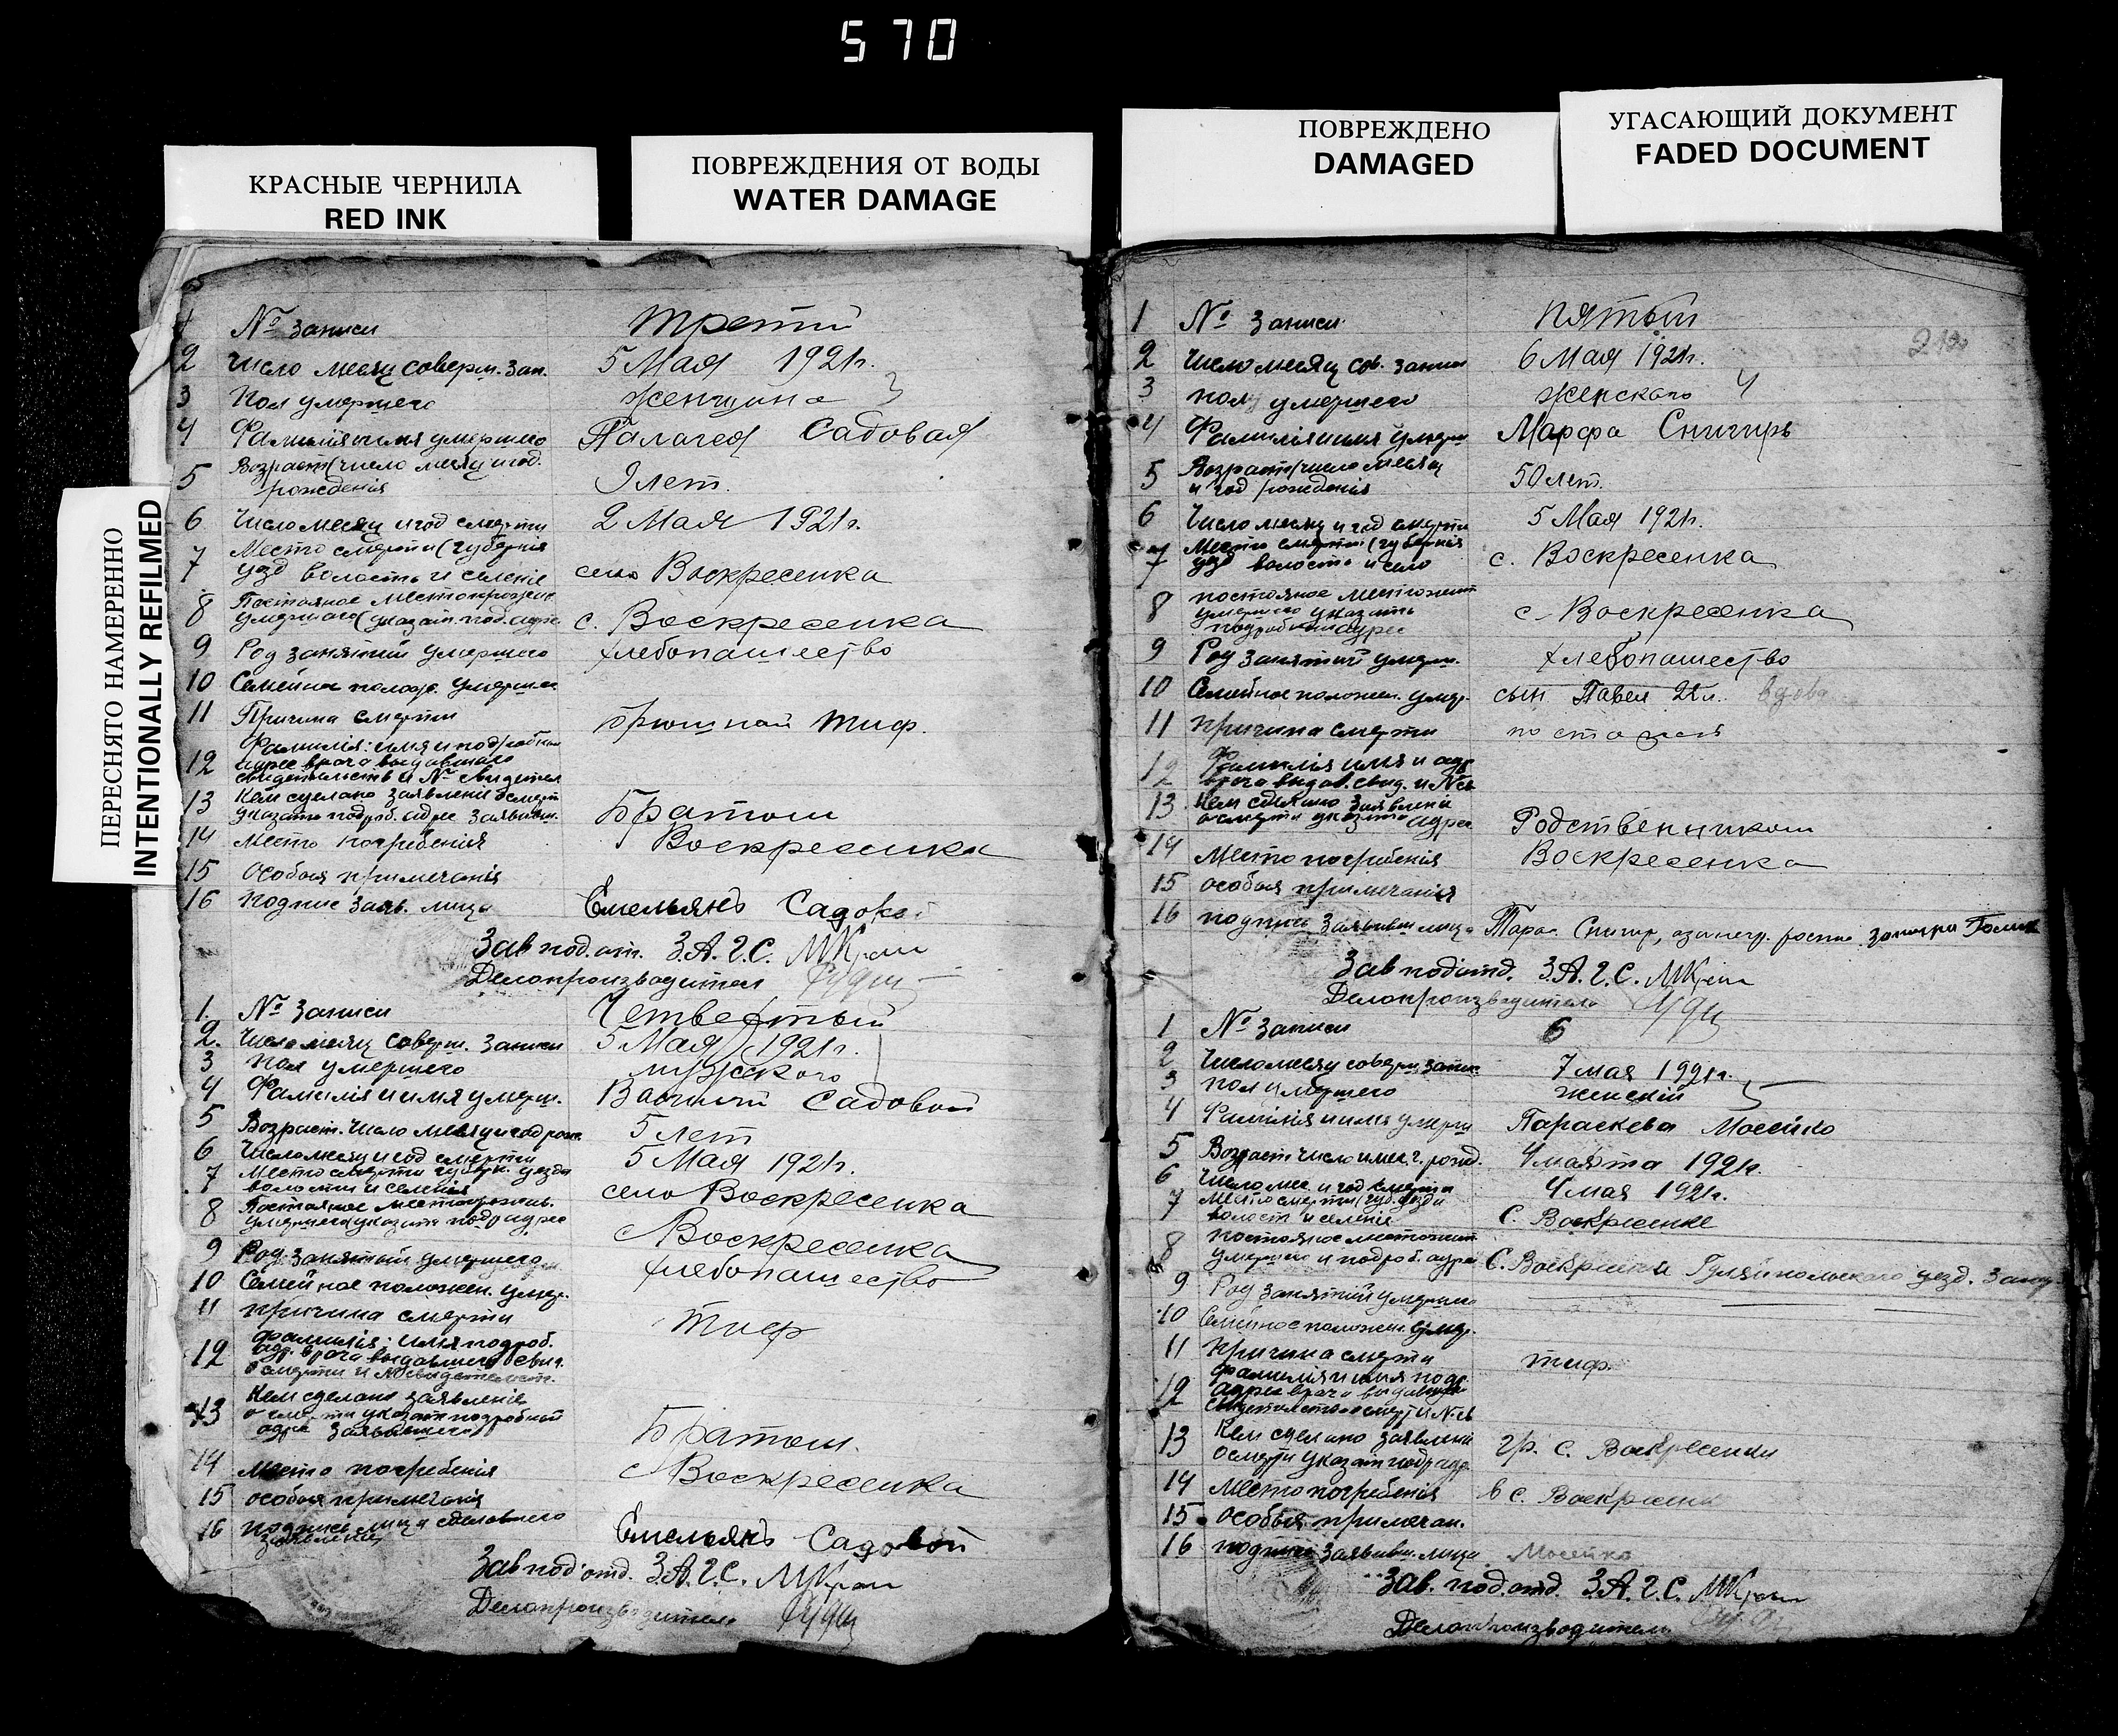 570
КРАСНЫЕ ЧЕРНИЛА
RED INK
ПОВРЕЖДЕНИЯ ОТ ВОДЫ
WATER DAMAGE
ПОВРЕЖДЕНО
DAMAGED
УГАСАЮЩИЙ ДОКУМЕНТ
FADED DOCUMENT
ПЕРЕСНЯТО НАМЕРЕННО
INTENTIONALLY REFILMED
1 № записи третий
2 Число месяц соверш. зап. 5 Мая 1921г.
3 Пол умершего женщина 3
4 Фамилія имя умершего Палагея Садовая
5 Возраст (число месяц и год. рожденія 9 лет.
6 Число месяц и год смерти 2 Мая 1921г.
7 Место смерти (губернія
уезд волость и селеніе село Воскресенка
8
умершаго (указат. под. адрес с. Воскресенка
9 Род занятий умершого хлебопашество
10 Семейна полож. умерши
11 Причина смерти Брюшной тиф.
Фамилія: имя и подробный
12 адрес врача выдавшаго
свидетельств и № свидетел
13 Кем сделано заявленіе о смерт
указать подроб. адрес заявивш. Братом
14 Место погребенія Воскресенка
15 Особыя примечанія
16 подпис заяв. лица Емельянъ Садовой
Зав под. от. З.А.Г.С. МКрат
Делопроизводител
1. № Записи Четвертый
2. Число месяц соверш. записи 5 Мая 1921г.
3 пол умершего мужского
4 Фамилія и имя умерш. Садовой
5 Возраст. Число месяц и год рожд. 5 лет
6 Число месяц и год смерти 5 Мая 1921г.
7 Место смерти губерн. уезда
волости и селенія село Воскресенка
8
умершего указат подр адрес с Воскресенка
9 Род. занятий умершего хлебопашество
10 Семейное положен. умер.
11 причина смерти тиф
фамилія: имя подроб.
12 адр. врача выдавшего свид.
о смерти и № свидетельст.
Кем сделано заявленіе
13 о смерти указат подробный
адрес заявившего Братом.
14 Место погребенія с Воскресенка
15 особыя примечанія
16 подпись лица сделавшего
заявление Емельянъ Садовой
Зав под отд. З.А.Г.С. МКрат
Делопроизводитель
1 № записи. пятый
2 Число месяц сов. записи 6 Мая 1921г.
3 полу умершего женского 4
4 Фамилія имя умерш Марфа Снигирь
5 Возраст (число месяц
и год рожденія 50 лет.
6 Число месяц и год смерти 5 Мая 1921г.
7 Место смерти (губернія
уезд волость и село с. Воскресенка
8 постоянное местожит
умершего указать
подробный адрес с. Воскресенка
9 Род занятий умерш. хлебопашество
10 Семейное положен. умер. сын Павел вдова
11 причина смерти
12 Фамилія имя и адр
врача выдав. свид. и №св
13 Кем сделано заявленіе
о смерти указать адрес Родственником
14 Место погребенія Воскресенка
15 особыя примечанія
16 подпись заявивш лица Тарас Снигир,
Зав под отд. З.А.Г.С. МКрат
Делопроизводитель
1 № записи 6
2 Число месяц соверш запис 7 мая 1921г.
3 пол умершего женский 5
4 Фамилія и имя умерш Параскева Мосейко
5 Возраст число и мес. г. рожд. 1921г.
6 Число мес. и год смерти 4 мая 1921г.
7 Место смерти (губ. уезда
волост и селеніе С. Воскресенке
8 постоянное местожит
умершего и подроб. адрес С. Воскресенка Гуляйпольскаго уезд.
9 Род занятий умерши
10 Семейное положен. умер.
11 Причина смерти тиф.
фамилія и имя подр.
12 адрес врача выдавшего
свидетельство о смерт и №св
13 Кем сделано заявленіе
о смерти указат подр адр. гр. с. Воскресенки
14 Место погребенія в с. Воскресенки
15 особыя примечан.
16 подпись заявивш. лица Мосейко
Зав. под. отд. З.А.Г.С. МКрат
Делопроизводитель